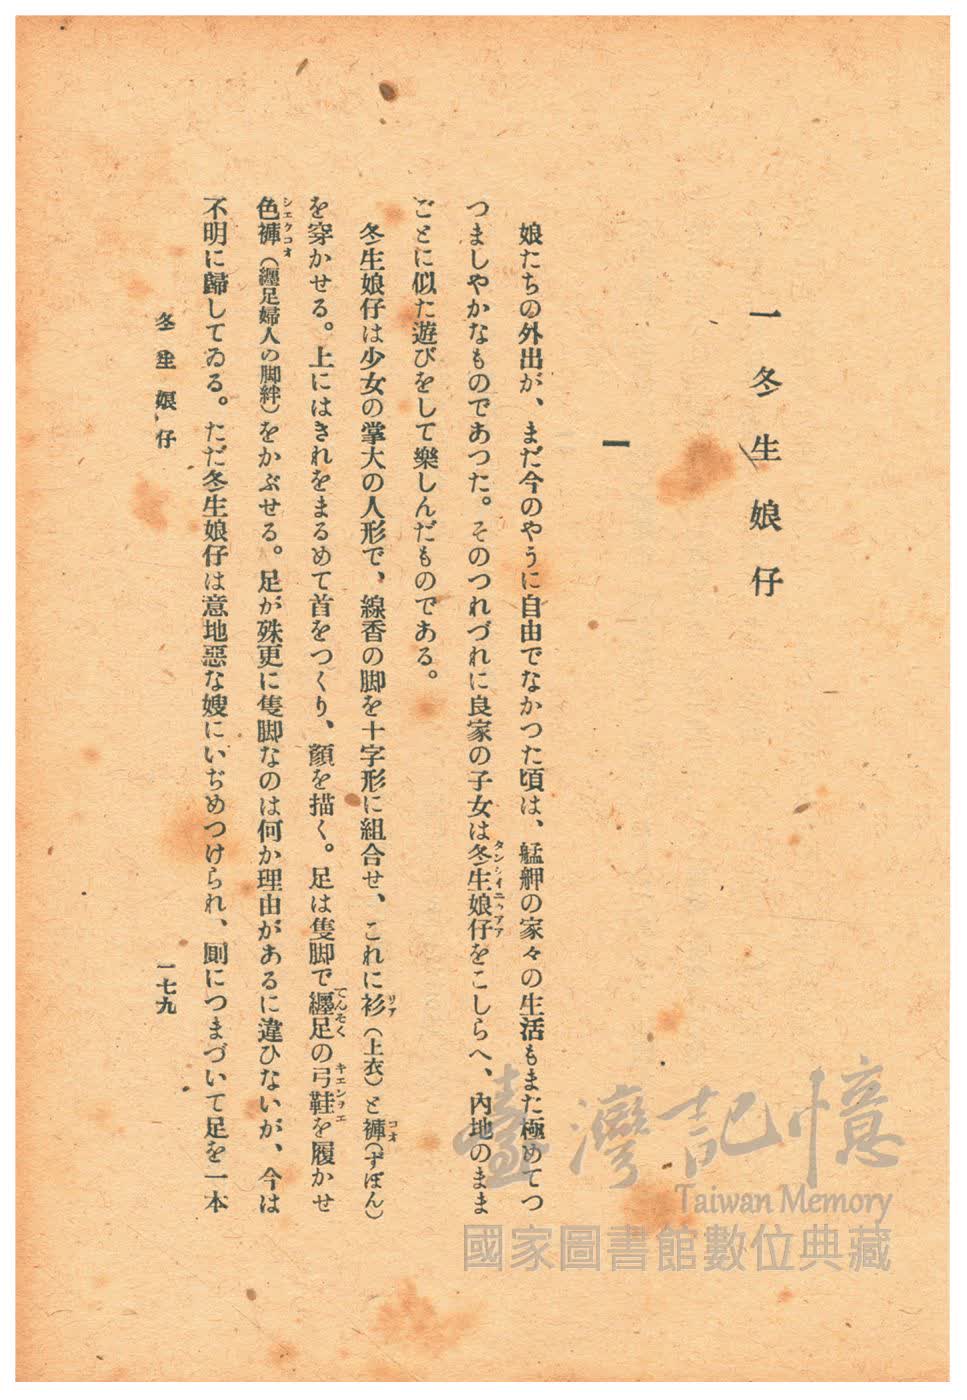 一 冬生娘仔
一
娘たちの外出が、まだ今のやうに自由でなかつた頃は、艋舺の家々の生活もまた極めてつ
つましやかなものであつた。そのつれづれに良家の子女は冬生娘仔をこしらへ、内地のまま
ごとに似た遊びをして樂しんだものである。
冬生娘仔は少女の掌大の人形で、線香の脚を十字形に組合せ、これに衫（上衣）と褲（ずぼん）
を穿かせる。上にはきれをまるめて首をつくり、顏を描く。足は隻脚で纒足の弓鞋を履かせ
色褲（纒足婦人の脚絆）をかぶせる。足が殊更に隻脚なのは何か理由があるに違ひないが、今は
不明に歸してゐる。ただ冬生娘仔は意地惡な嫂にいぢめつけられ、厠につまづいて足を一本
冬生娘仔
一七九
臺灣記憶
Taiwan Memory
國家圖書館數位典藏